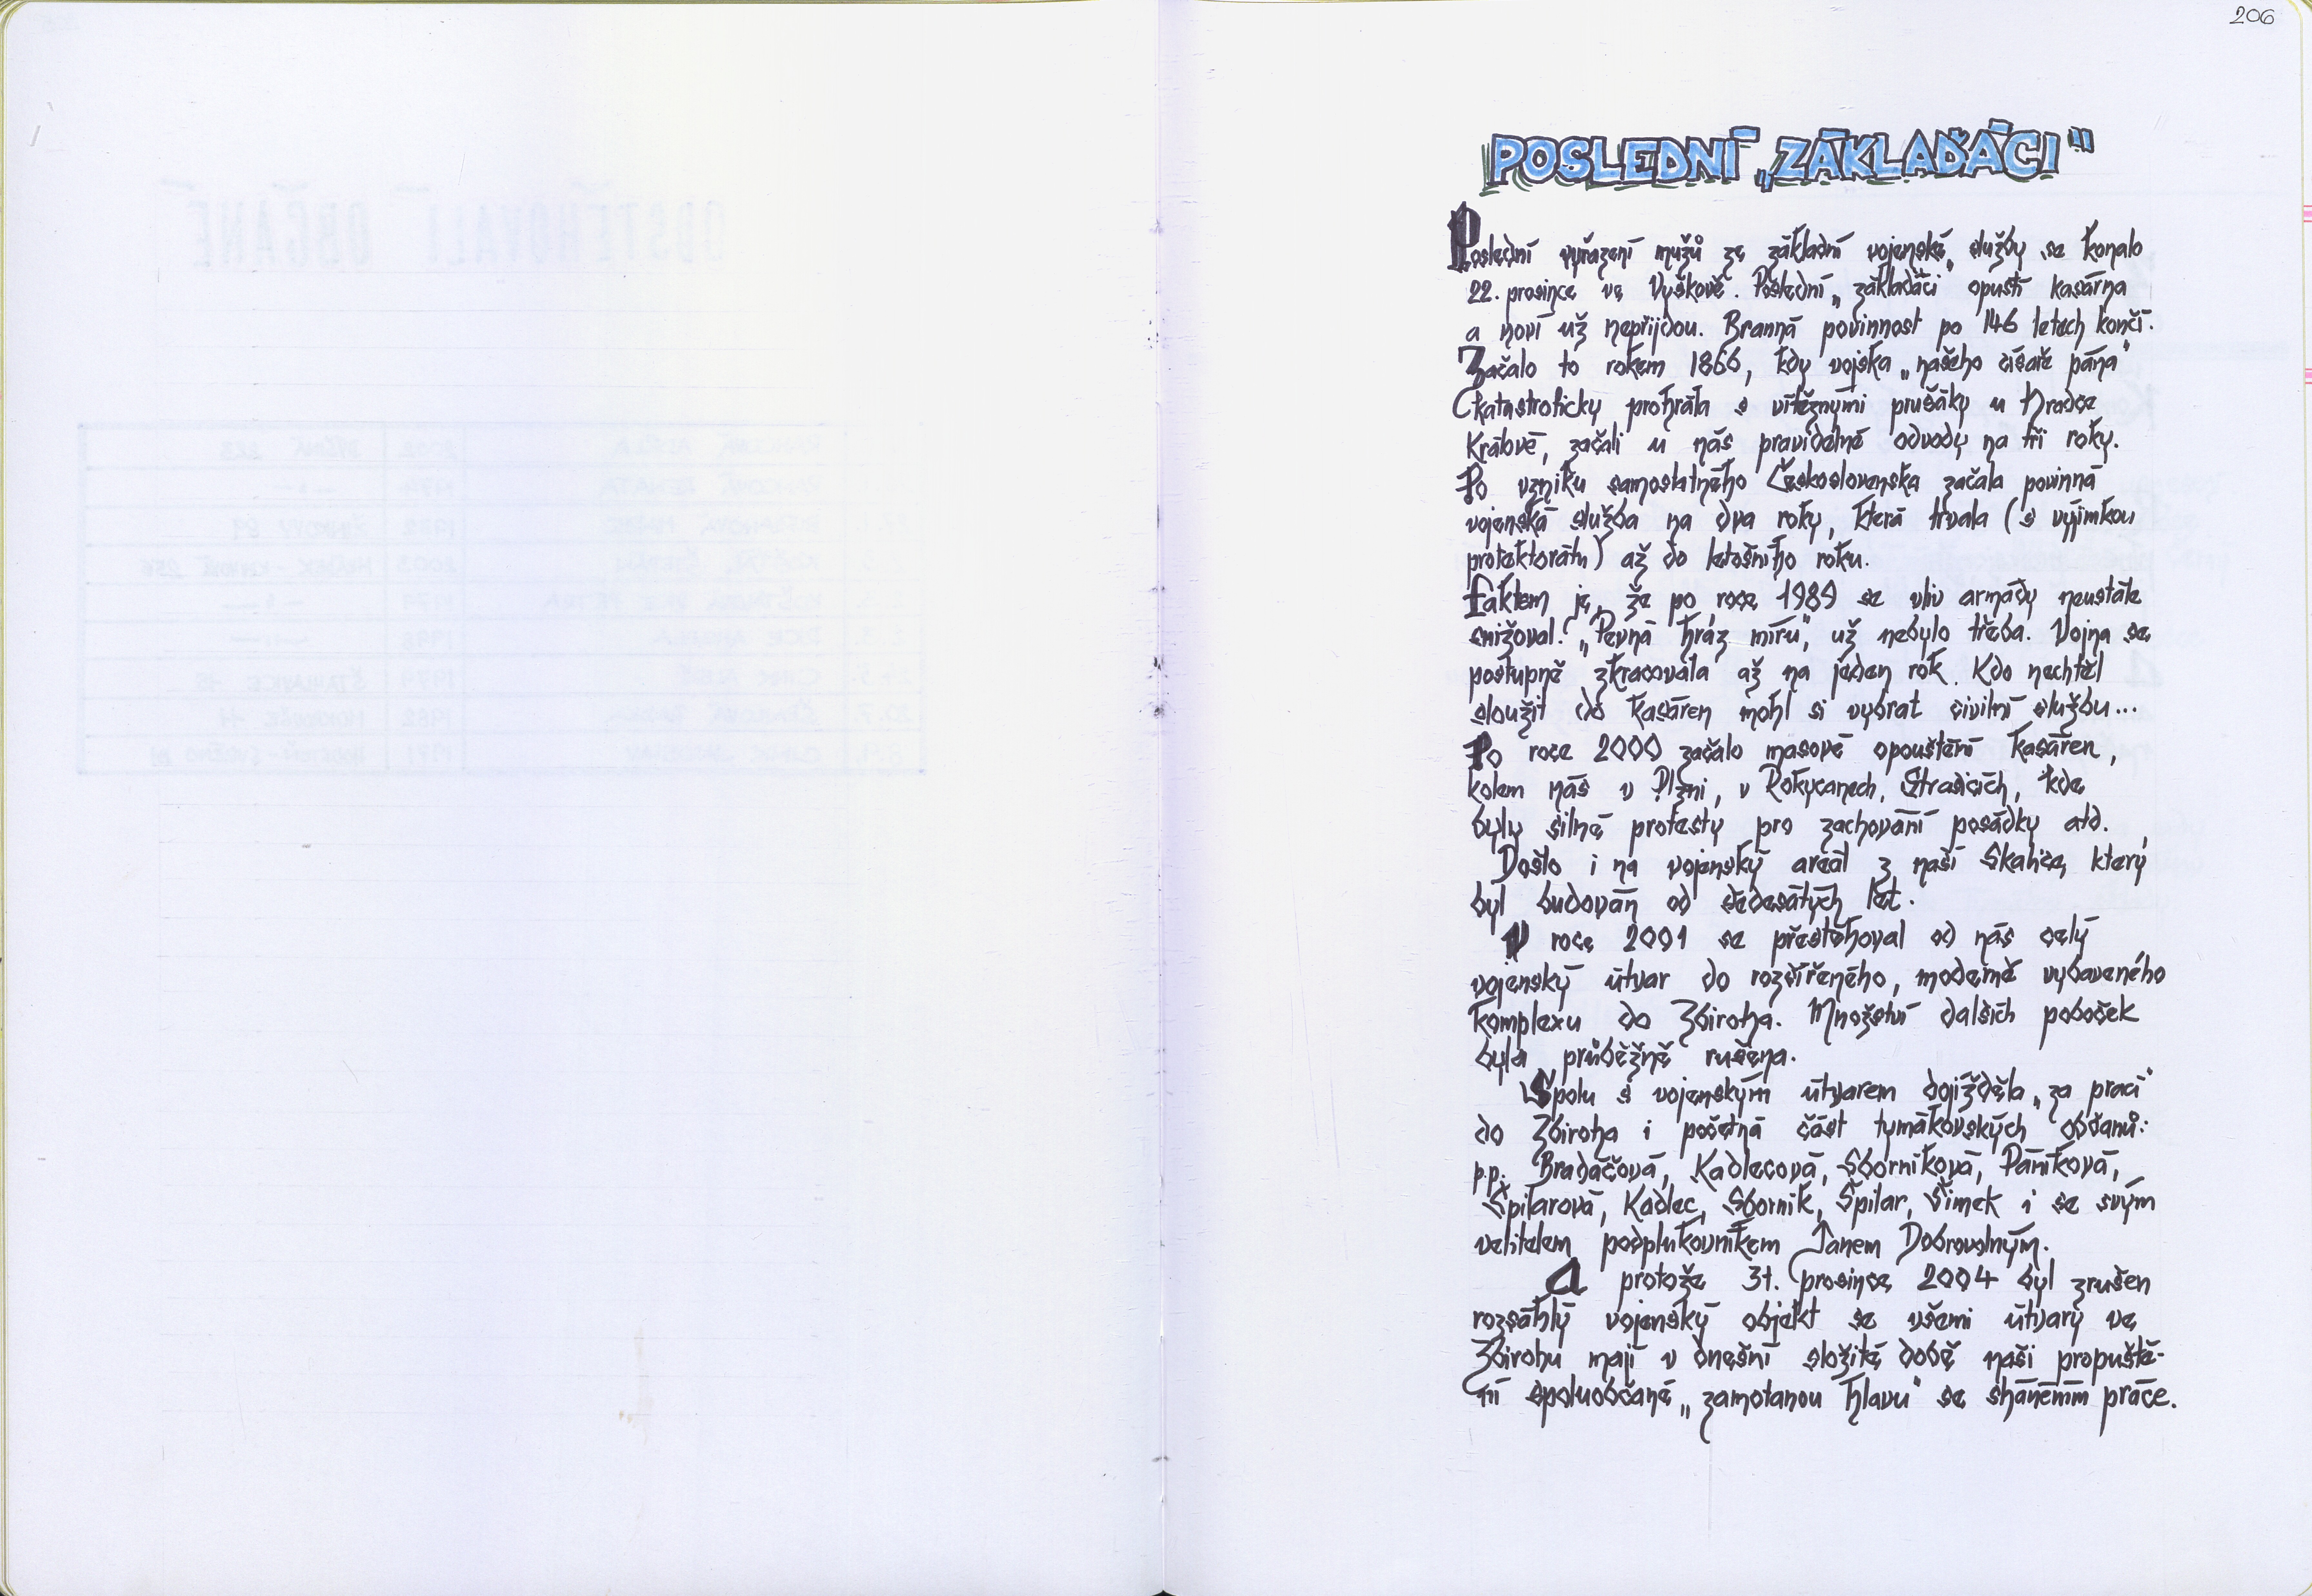 206
POSLEDNÍ „ZÁKLAĎÁCI"
Poslední vyřazení mužů ze základní vojenské služby se konalo
22. prosince ve Vyškově. Poslední „základáči" opustí kasárna
a noví už nepřijdou. Branná povinnost po 146 letech končí.
Začalo to rokem 1866, kdy vojska „našeho císaře pána"
katastroficky prohrála s vítěznými prušáky u Hradce
Králové, začali u nás pravidelné odvody na tři roky.
Po vzniku samostatného Československa začala povinná
vojenská služba na dva roky, která trvala (s výjimkou
protektorátu) až do letošního roku.
Faktem je, že po roce 1989 se vliv armády neustále
snižoval. „Pevná hráz míru", už nebylo třeba. Vojna se
postupně zkracovala až na jeden rok. Kdo nechtěl
sloužit do kasáren mohl si vybrat civilní službu...
Po roce 2000 začalo masové opouštění kasáren,
kolem nás v Plzni, v Rokycanech, Strašicích, kde
byly silné protesty pro zachování posádky atd.
Došlo i na vojenský areál z naší Skalice, který
byl budován od šedesátých let.
V roce 2001 se přestěhoval od nás celý
vojenský útvar do rozšířeného, moderně vybaveného
komplexu do Zbiroha. Množství dalších poboček
byla průběžně rušena.
Spolu s vojenským útvarem dojížděla „za prací"
do Zbiroha i početná část tymákovských občanů:
p.p. Bradáčová, Kadlecová, Sborníková, Páníková,
Špilarová, Kadlec, Sborník, Špilar, Šimek i se svým
velitelem podplukovníkem Janem Dobrovolným.
A protože 31. prosince 2004 byl zrušen
rozsáhlý vojenský objekt se všemi útvary ve
Zbirohu mají v dnešní složité době naši propuště-
ní spoluobčané „zamotanou hlavu" se sháněním práce.